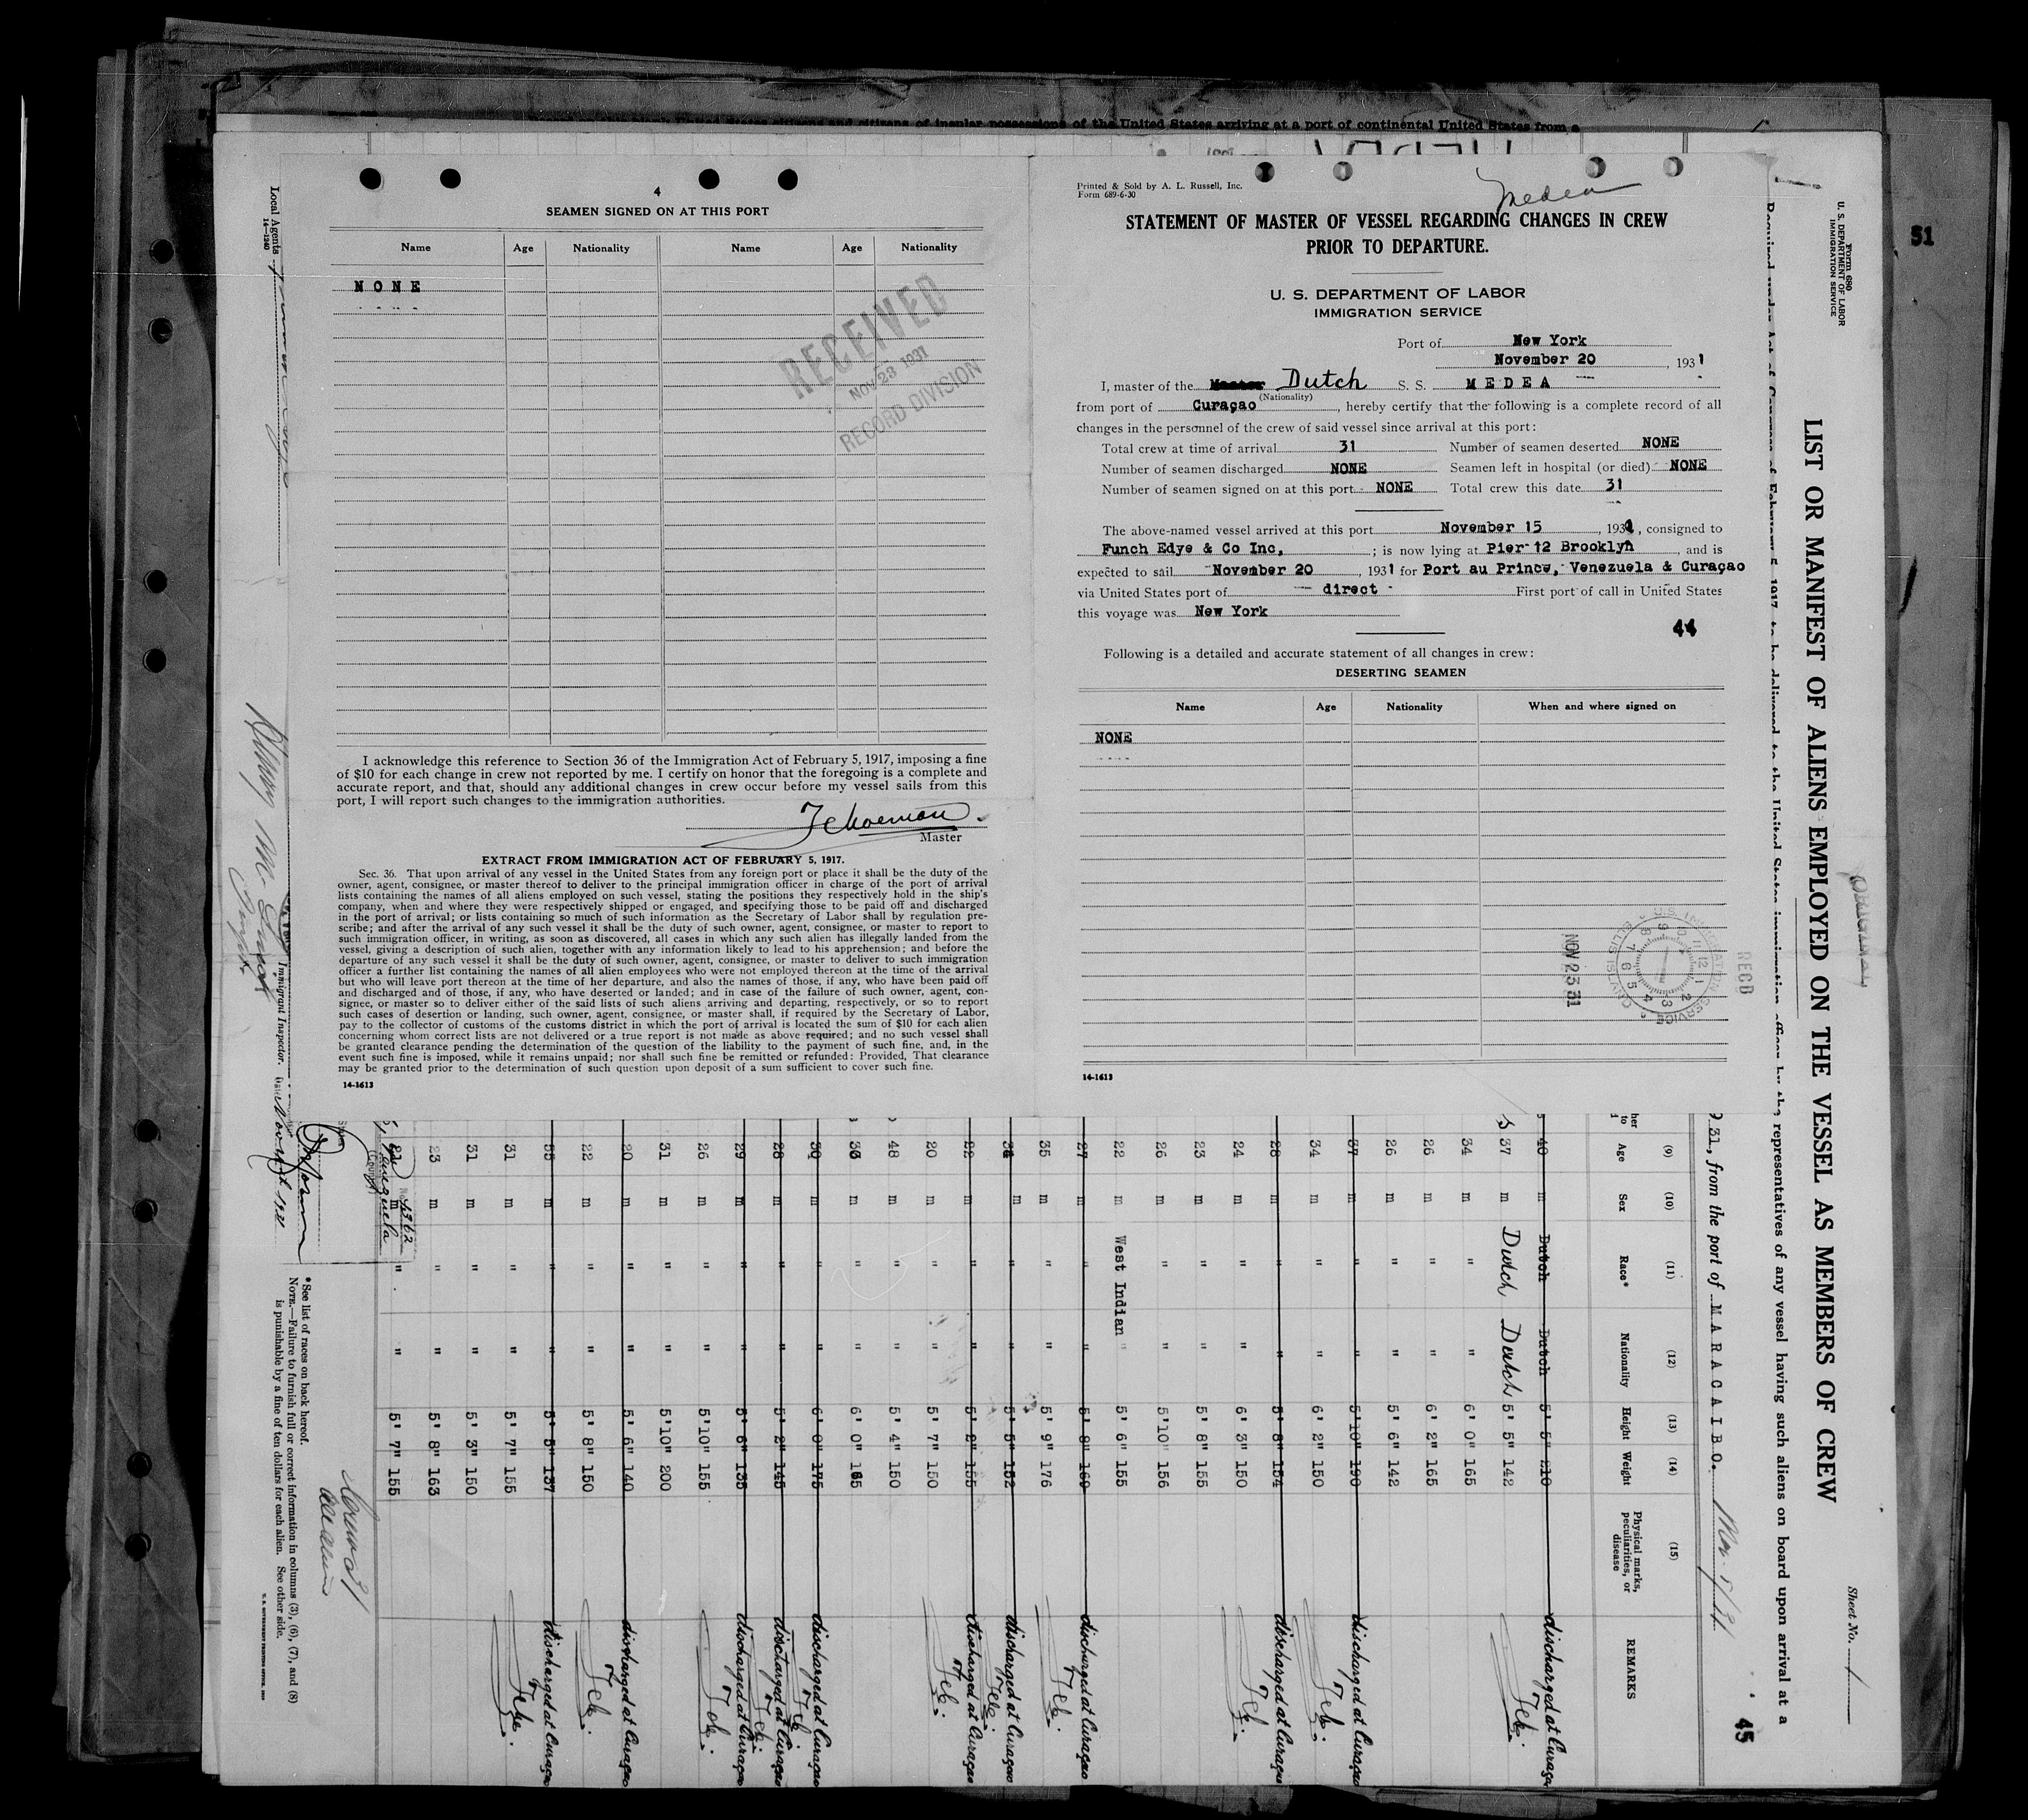 4
SEAMEN SIGNED ON AT THIS PORT
Name Age Nationality Name Age Nationality
NONE
RECEIVED
NOV 23 1931
RECORD DIVISION
I acknowledge this reference to Section 36 of the Immigration Act of February 5, 1917, imposing a fine
of $10 for each change in crew not reported by me. I certify on honor that the foregoing is a complete and
accurate report, and that, should any additional changes in crew occur before my vessel sails from this
port, I will report such changes to the immigration authorities.
Master
EXTRACT FROM IMMIGRATION ACT OF FEBRUARY 5, 1917.
Sec. 36. That upon arrival of any vessel in the United States from any foreign port or place it shall be the duty of the
owner, agent, consignee, or master thereof to deliver to the principal immigration officer in charge of the port of arrival
lists containing the names of all aliens employed on such vessel, stating the positions they respectively hold in the ship's
company, when and where they were respectively shipped or engaged, and specifying those to be paid off and discharged
in the port of arrival; or lists containing so much of such information as the Secretary of Labor shall by regulation pre-
scribe; and after the arrival of any such vessel it shall be the duty of such owner, agent, consignee, or master to report to
such immigration officer, in writing, as soon as discovered, all cases in which any such alien has illegally landed from the
vessel, giving a description of such alien, together with any information likely to lead to his apprehension; and before the
departure of any such vessel it shall be the duty of such owner, agent, consignee, or master to deliver to such immigration
officer a further list containing the names of all alien employees who were not employed thereon at the time of the arrival
but who will leave port thereon at the time of her departure, and also the names of those, if any, who have been paid off
and discharged and of those, if any, who have deserted or landed; and in case of the failure of such owner, agent, con-
signee, or master so to deliver either of the said lists of such aliens arriving and departing, respectively, or so to report
such cases of desertion or landing, such owner, agent, consignee, or master shall, if required by the Secretary of Labor,
pay to the collector of customs of the customs district in which the port of arrival is located the sum of $10 for each alien
concerning whom correct lists are not delivered or a true report is not made as above required; and no such vessel shall
be granted clearance pending the determination of the question of the liability to the payment of such fine, and, in the
event such fine is imposed, while it remains unpaid; nor shall such fine be remitted or refunded: Provided, That clearance
may be granted prior to the determination of such question upon deposit of a sum sufficient to cover such fine.
14-1613
Printed & Sold by A. L. Russell, Inc.
Form 689-6-30
Medea
STATEMENT OF MASTER OF VESSEL REGARDING CHANGES IN CREW
PRIOR TO DEPARTURE.
U. S. DEPARTMENT OF LABOR
IMMIGRATION SERVICE
Port of New York
November 20, 1931
I, master of the Dutch S. S. MEDEA
(Nationality)
from port of Curaçao, hereby certify that the following is a complete record of all
changes in the personnel of the crew of said vessel since arrival at this port:
Total crew at time of arrival 31 Number of seamen deserted NONE
Number of seamen discharged NONE Seamen left in hospital (or died) NONE
Number of seamen signed on at this port NONE Total crew this date 31
The above-named vessel arrived at this port November 15, 1931, consigned to
Funch Edye & Co Inc, ; is now lying at Pier 12 Brooklyn, and is
expected to sail November 20, 1931 for Port au Prince, Venezuela & Curaçao
via United States port of direct First port of call in United States
this voyage was New York
44
Following is a detailed and accurate statement of all changes in crew:
DESERTING SEAMEN
Name Age Nationality When and where signed on
NONE
NOV 23 31
U.S. IMMIGRATION SERVICE
ELLIS ISLAND
RECD
14-1613
51
Form 680
U. S. DEPARTMENT OF LABOR
IMMIGRATION SERVICE
Sheet No.
LIST OR MANIFEST OF ALIENS EMPLOYED ON THE VESSEL AS MEMBERS OF CREW
representatives of any vessel having such aliens on board upon arrival at a
45
31, from the port of MARACAIBO. Nov. 5/31
(9) (10) (11) (12) (13) (14) (15)
Age Sex Race* Nationality Height Weight Physical marks, peculiarities, or disease REMARKS
40 m Dutch Dutch 5' 5" 210 discharged at Curaçao
37 m Dutch Dutch 5' 5" 142
34 m " " 6' 0" 165
26 m " " 6' 2" 165
26 m " " 5' 6" 142
37 m " " 5'10" 190 discharged at Curaçao
34 m " " 6' 2" 150
28 m " " 5' 8" 154 discharged at Curaçao
24 m " " 6' 3" 150
23 m " " 5' 8" 155
26 m " " 5'10" 156
22 m West Indian " 5' 6" 155
27 m " 5' 8" 160 discharged at Curaçao
35 m " " 5' 9" 176
34 m " " 5' 5" 152 discharged at Curaçao
22 m " " 5' 2" 155 discharged at Curaçao
20 m " " 5' 7" 150
48 m " " 5' 4" 150
m " " 6' 0" 165
30 m " " 6' 0" 175 discharged at Curaçao
28 m " " 5' 2" 145 discharged at Curaçao
29 m " " 5' 6" 135 discharged at Curaçao
26 m " " 5'10" 155
31 m " " 5'10" 200
20 m " " 5' 6" 140 discharged at Curaçao
22 m " " 5' 8" 150
55 m " " 5' 5" 137 discharged at Curaçao
31 m " " 5' 7" 155
31 m " " 5' 3" 150
23 m " " 5' 8" 163
m " " 5' 7" 155
Venezuela
*See list of races on back hereof.
NOTE.—Failure to furnish full or correct information in columns (3), (6), (7), and (8)
is punishable by a fine of ten dollars for each alien. See other side.
Immigrant Inspector.
Local Agents
14—1240